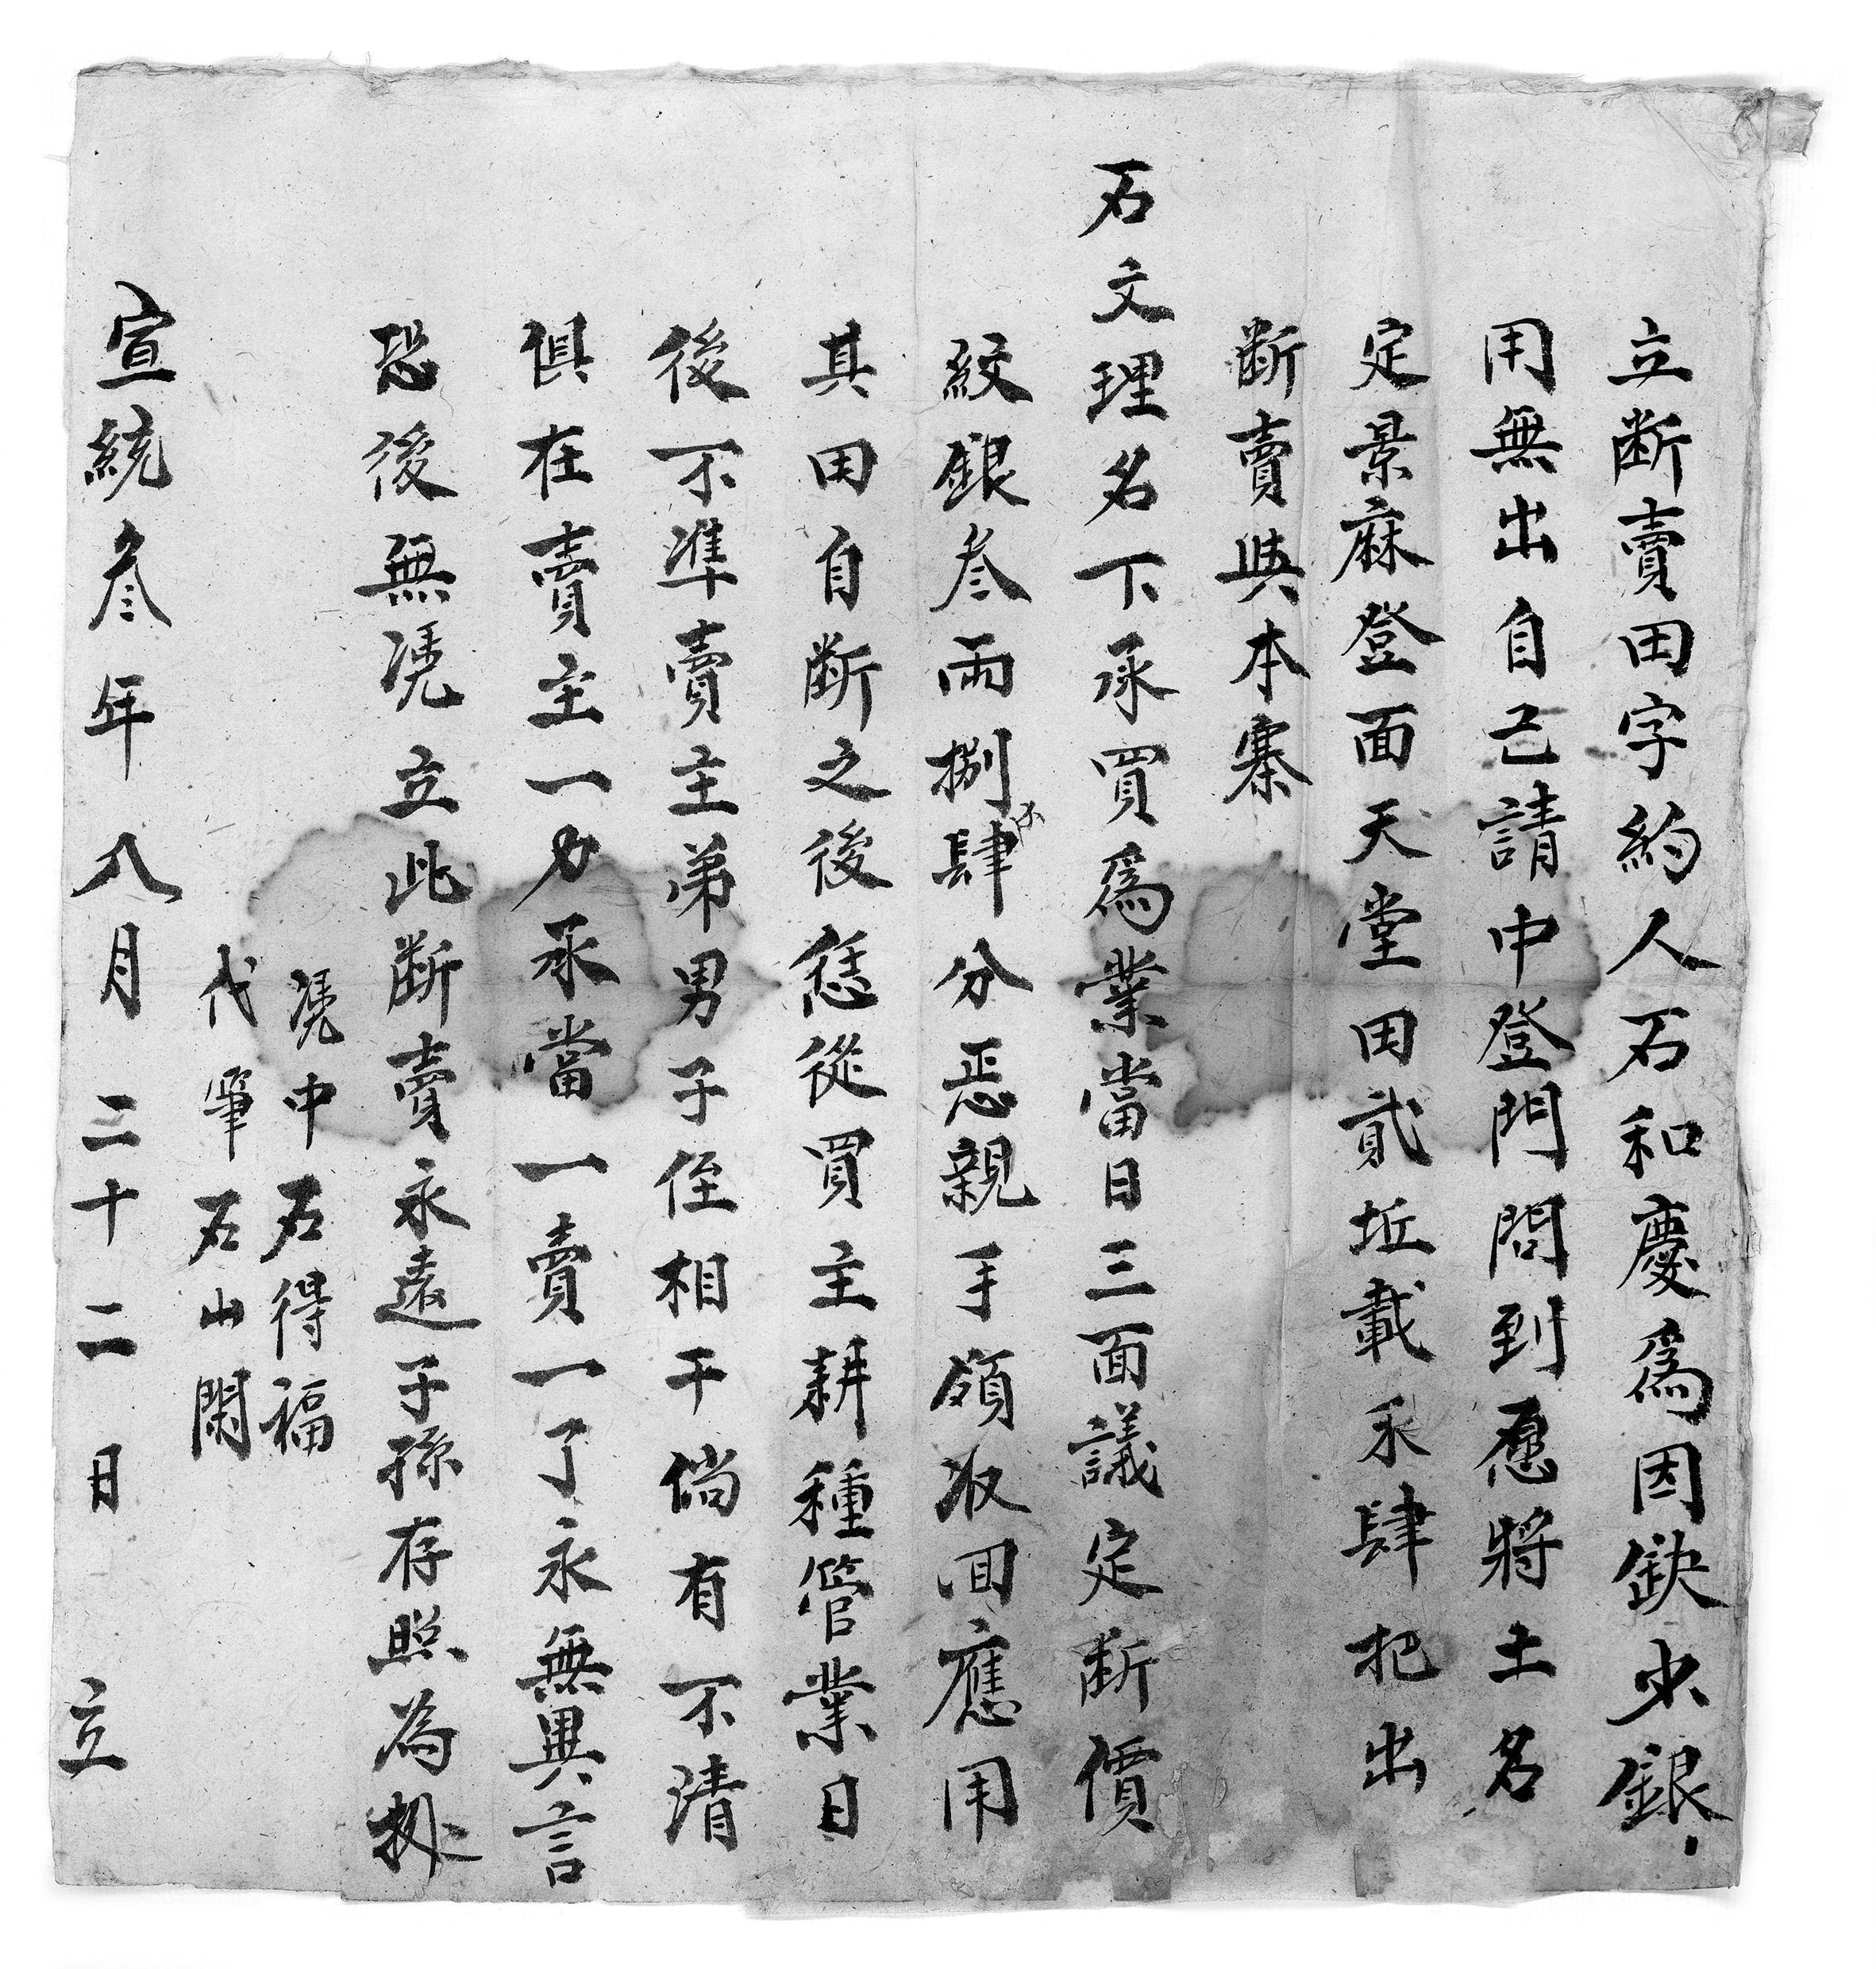 立断賣田字約人石和慶爲因缺少銀
用無出自己請中登門問到愿將土名
定景麻登面天堂田貳坵載禾肆把出
断賣與本寨
石文理名下承買爲業當日三面議定断價
紋銀叁両捌才肆分恁親手領収囬應用
其田自断之後恁從買主耕種管業日
後不凖賣主弟男子侄相干倘有不清
俱在賣主一力承當一賣一了永無異言
恐後無凴立此断賣永遠子孫存照為㩀
凴中石得福
代筆石山開
宣統叁年八月二十二日立